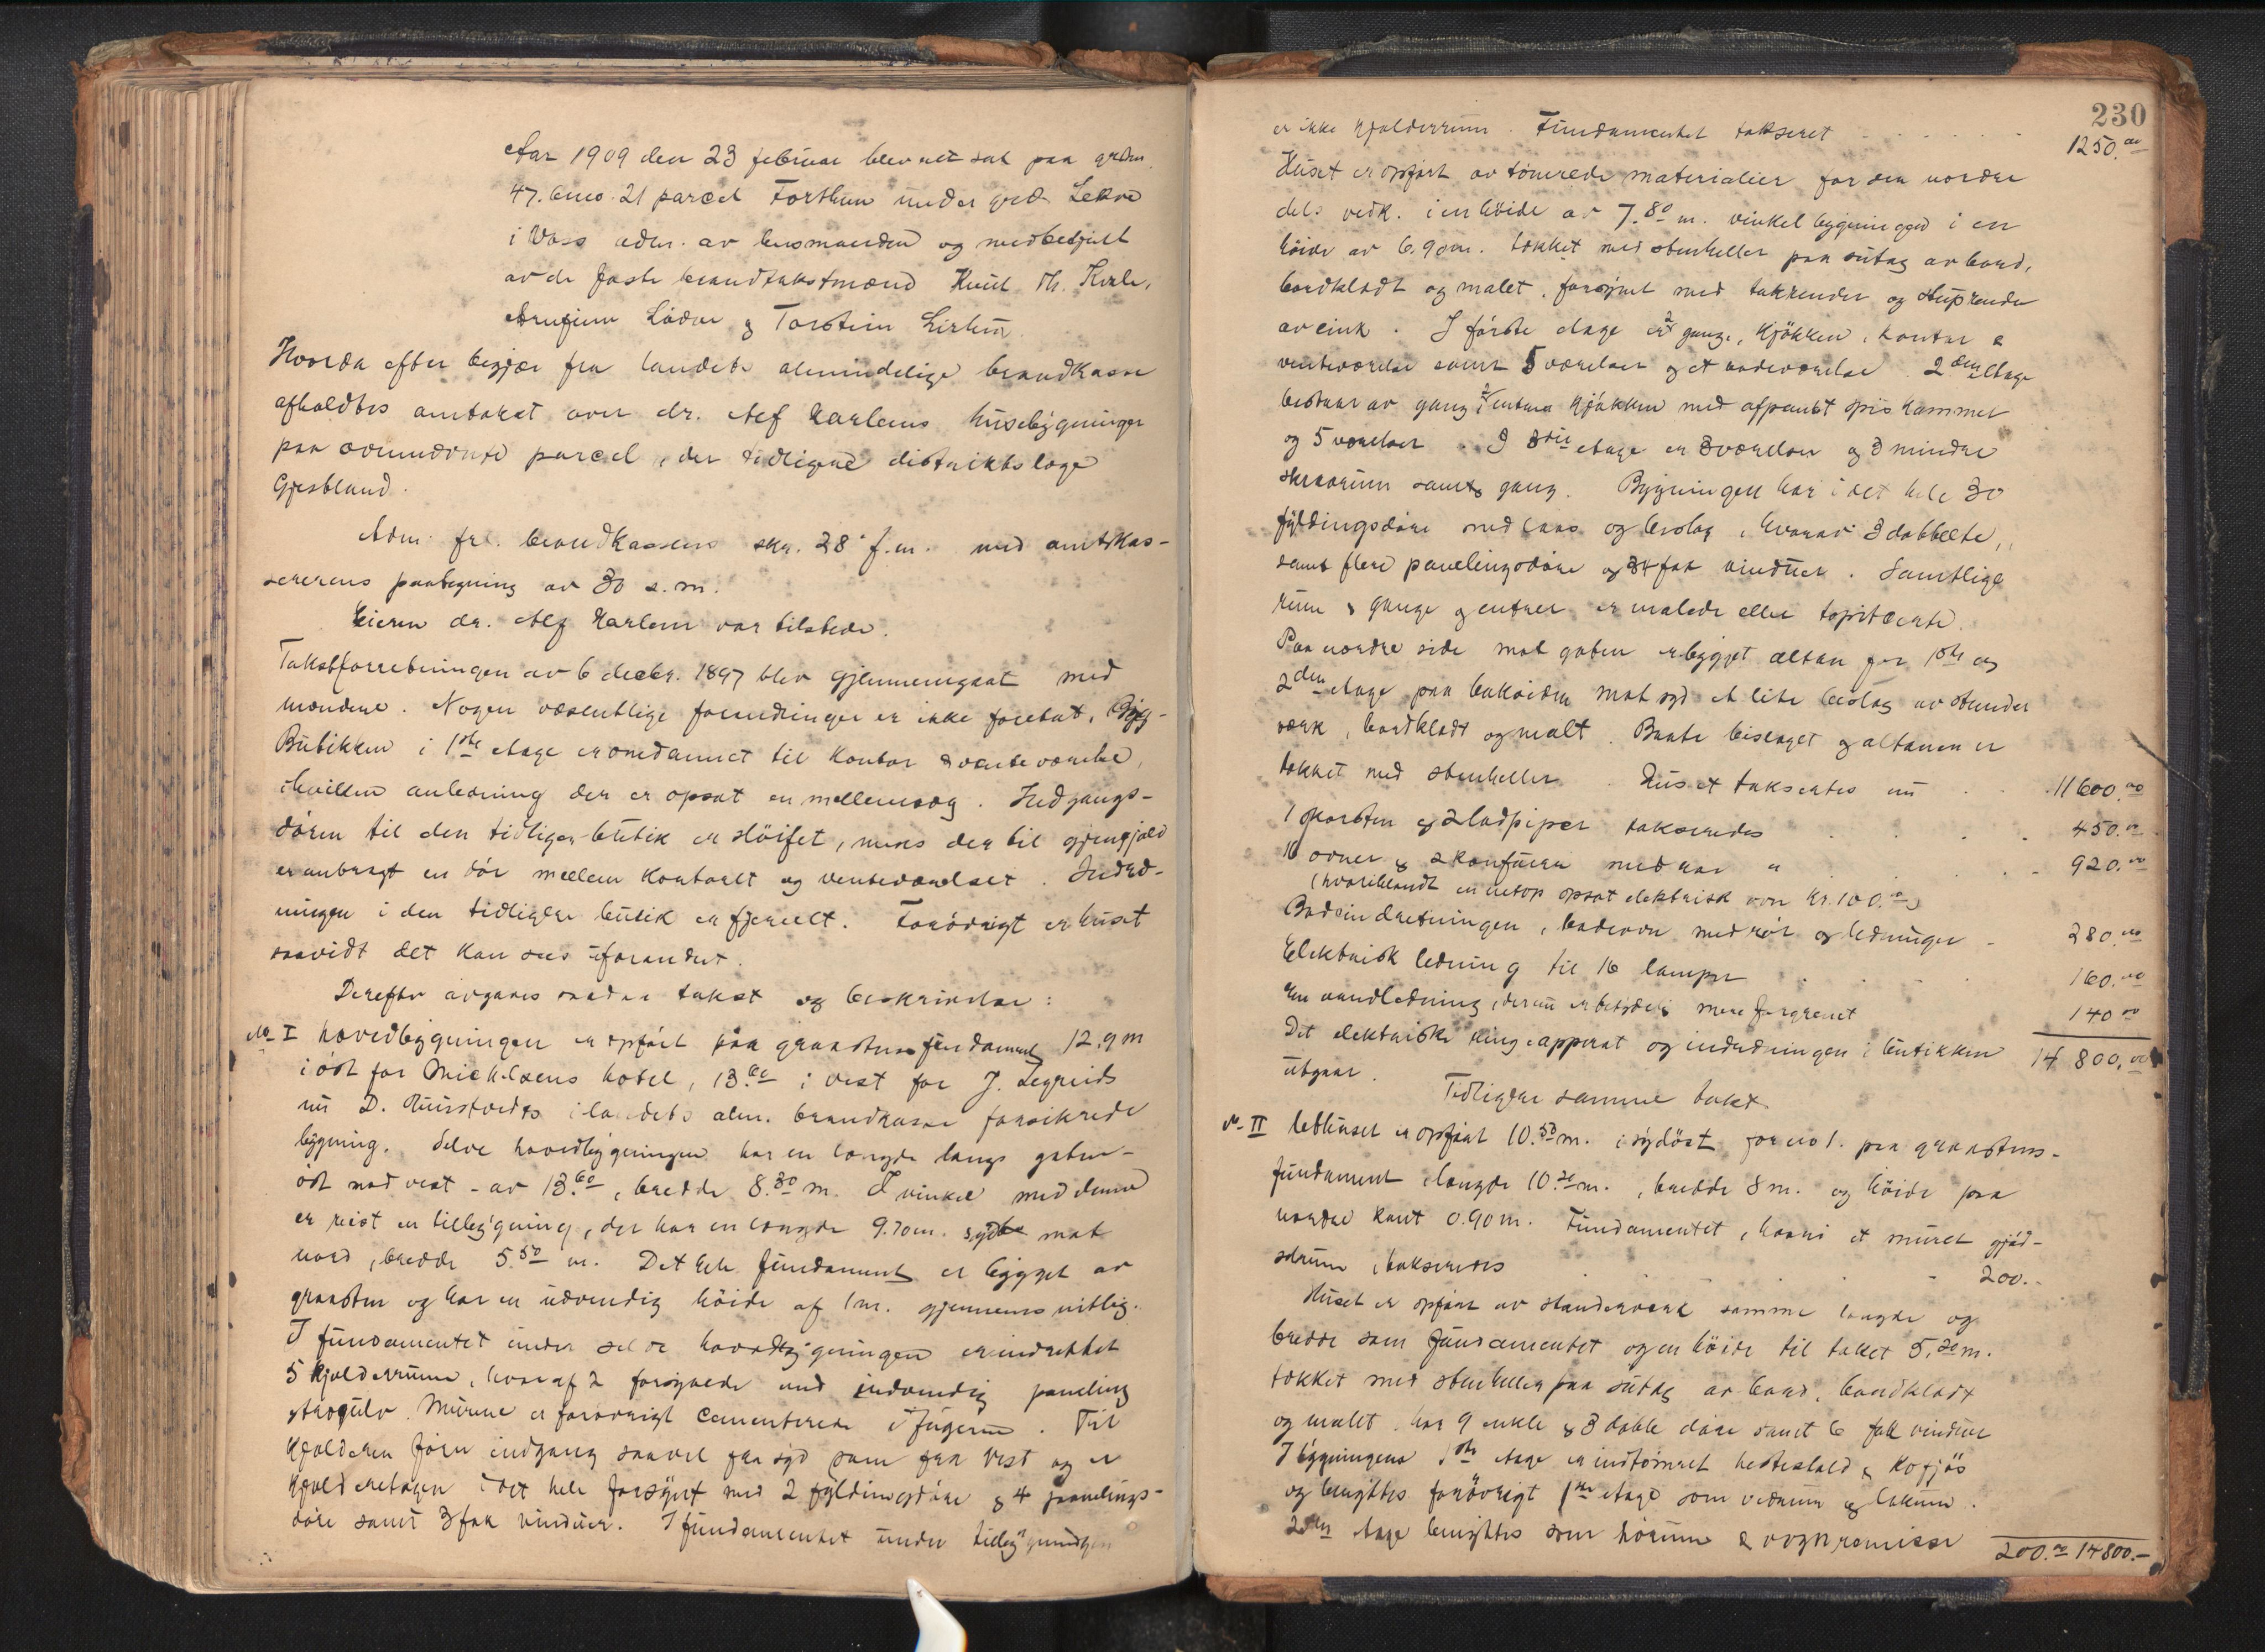 Aar 1909 den 23 februar blev ret sat paa grdsn.
47. bno. 21 parcel Forthun under grd. Lekve
i Voss adm. av lensmanden og medbetjent
av de faste brandtakstmænd Knut Th. Kvale,
Arnfinn Lödve & Torstein Lirhus.
Hvorda efter begjær fra landets almindelige brandkasse
afholdtes omtakst over dr. Alf Karlens husebygninger
paa ovennævnte parcel, der tidligere distriktslæge
Gjestland.
Adm. fre. brandkassens skr. 28 f.m. med amtskas-
sererens paategning av 30 s.m.
Eieren dr. Alf Karlem var tilstede.
Takstforretningen av 6 decbr. 1897 blev gjennemgaat med
mændene. Nogen væsentlige forandringer er ikke foretat,
Butikken i 1ste etage er omdannet til kontor & venteværelse,
i hvilken anledning der er opsat en mellemvæg. Indgangs-
dören til den tidligere butik er slöifet, mens der til gjengjæld
er anbragt en dör mellem kontoret og venteværelset. Indred-
ningen i den tidligere butik er fjernet. Forövrigt er huset
saavidt det kan sees uforandret.
Derefter avgaves saadan takst og beskrivelse:
No I hovedbygningen er opfört paa graastensfundament 12,9 m
i öst for Michelsens hotel, 13.60 i vest for J. Seqveids
nu D. i landets alm. brandkasse forsikrede
bygning. Selve hovedbygningen har en længde langs gaten -
öst mod vest - av 13.60, bredde 8.30 m. I vinkel med denne
er reist en tilbygning, der har en længde 9.70 m. syd mot
nord, bredde 5.50 m. Det hele fundament er bygget av
graasten og har en udvendig höide af 1 m. gjennemsnitlig.
I fundamentet under selve hovedbygningen er indrettet
5 kjelderrum, hvoraf 2 forsynede med indvendig paneling
& trægulv. Murene er forövrigt cementerede i fugerne. Til
kjelderen förer indgang saavel fra syd som fra vest og er
kjelderetagen i det hele forsynt med 2 fyldingsdöre & 4 panelings-
döre samt 3 fak vinduer. I fundamentet under tilbygningen
230
er ikke kjelderrum. Fundamentet takseret 1250.00
Huset er opfört av tömrede materialier for den nordre
del. vedk. i en höide av 7.80 m. vinkelbygningen i en
höide av 6.90 m. tækket med stenheller paa sutag av bord,
bordklædt og malet, forsynet med takrender og stuprender
av zink. I förste etage er 2 gange, kjökken, kontor &
venteværelse samt 5 værelser og et badeværelse. 2den etage
bestaar av gang 2 entreer kjökken med afpanelt spiskammer
og 5 værelser. I 3die etage er 3 værelser og 3 mindre
skraarum samt gang. Bygningen har i det hele 30
fyldingsdöre med laas og beslag, hvorav 3 dobbelte,
samt flere panelingsdöre og 34 fak vinduer. Samtlige
rum & gange og entreer er malede eller tapitserede.
Paa nordre side mot gaten er bygget altan for 1ste og
2den etage paa baksiden mot syd et lite bislag av stender
værk, bordklædt og malt. Baade bislaget og altanen er
tækket med stenheller. Huset takseres nu 11600.00
1 skorsten og 2 ladpiper takseredes 450.00
10 ovner & 2 komfurer med rör " 920.00
(hvoriblandt en netop opsat elektrisk ovn kr. 100.00)
Badeindretningen, badeovn med rör og ledninger 280.00
Elektrisk ledning til 16 lamper 160.00
En vandledning, der nu er betydelig mere forgrenet 140.00
Det elektriske ringeapperat og indredningen i butikken 14 800.00
utgaar.
Tidligere samme takst.
No II Uthuset er opfört 10.50 m. i sydöst for no 1. paa graastens-
fundament, længde 10.20 m., bredde 8 m. og höide paa
nordre kant 0.90 m. Fundamentet, hvori et muret gjöd-
selrum, takseredes 200.-
Huset er opfört av stenderværk samme længde og
bredde som fundamentet og en höide til taket 5.20 m.
tækket med stenheller paa sutag av bord, bordklædt
og malt, har 9 enkle & 3 doble döre samt 6 fak vinduer
I bygningens 1ste etage er indtömret hestestald & kofjös
og benyttes forövrigt 1ste etage som vedrum og lokum.
2den etage benyttes som hörum & vognremisse
200.00 14800.-